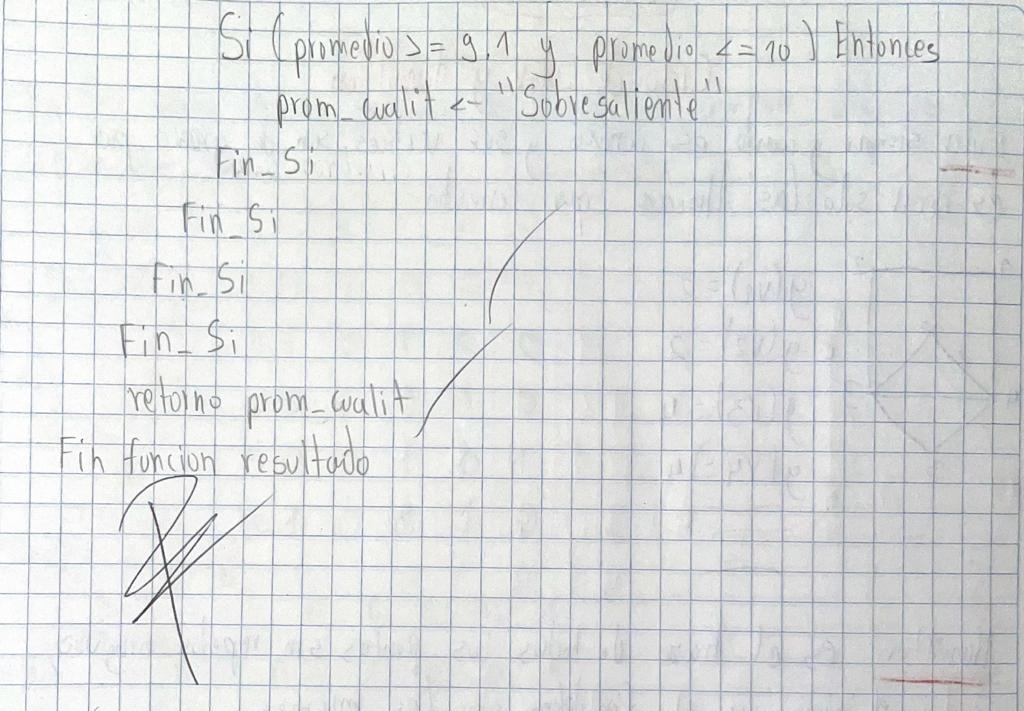 Si (promedio >= 9.1 y promedio <= 10) Entonces
prom_cualit <- "Sobresaliente"
Fin_Si
Fin_Si
Fin_Si
Fin_Si
retorno prom_cualit
Fin funcion resultado